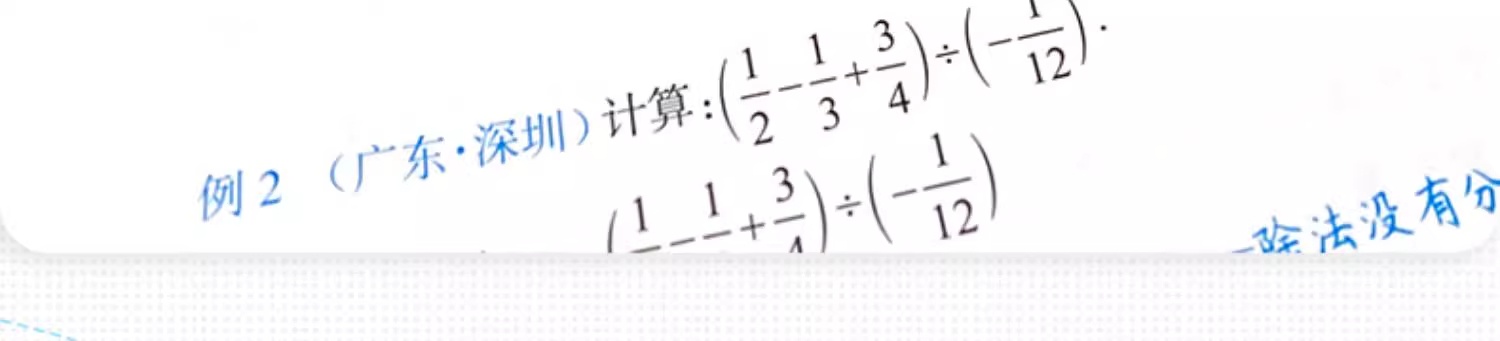 例2 (广东·深圳)计算:(1/2-1/3+3/4)÷(-1/12).
(1-1+3/4)÷(-1/12)
除法没有分